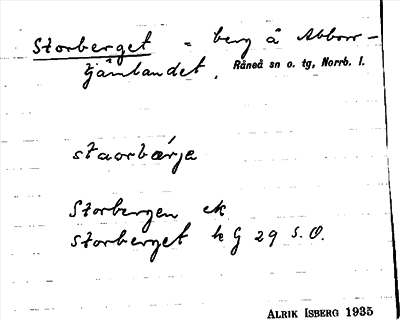 Storberget = berg å Abborr-
tjämlandet. Råneå sn o. tg, Norrb. l.
staorbærje
Storbergen ek
Storberget hG 29 S.O.
ALRIK ISBERG 1935